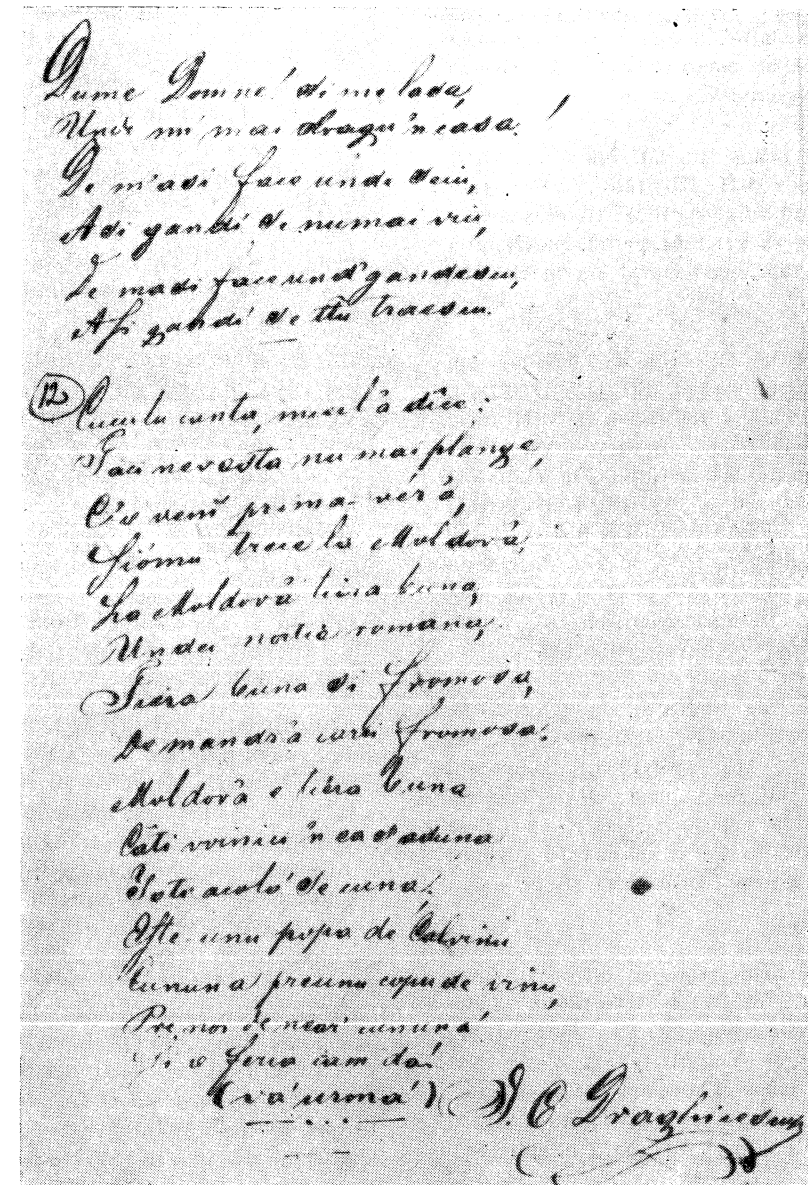 Dume Domne! si me lasa,
Unde mi mai dragu'n casa!
De m'asi face unde sciu,
Asi gandi se numai viu,
De masi face und' gandescu,
Asi gandi se tŭ traescu.
12 Cucula canta, mierl'a dice:
Taci nevesta nu mai plange,
Cĕo veni prima-vér'a,
Sióma trece la Moldov'a,
La Moldov'a tiéra buna,
Undei notia romana,
Tiéra buna si fromosa,
De mandr'a carei fromosa:
Moldov'a e tiéra buna
Câti voinici 'n ea s'aduna
Toti acolo' se cuna!
Este unu popa de Calvinu
Cununa precunu copu de vinu,
Pre noi de neari cununá
Si o feria iam da!
(va' urma')
I. C. Draghicescu